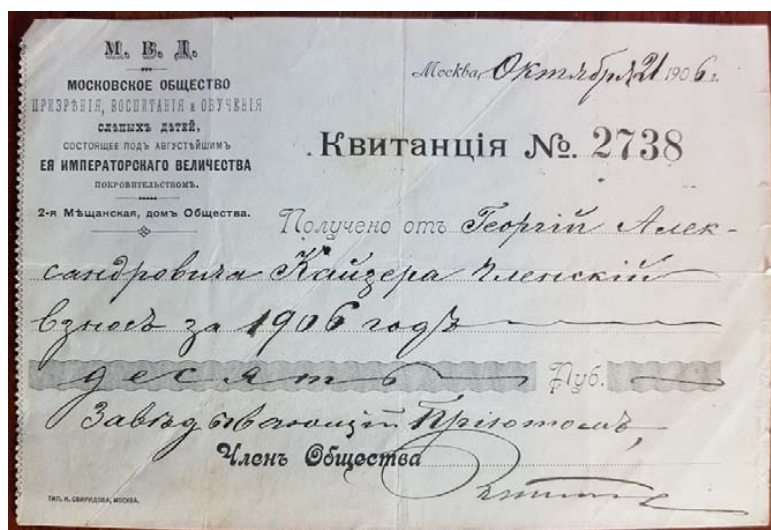 М. В. Д.
МОСКОВСКОЕ ОБЩЕСТВО
ПРИЗРѢНІЯ, ВОСПИТАНІЯ и ОБУЧЕНІЯ
СЛѢПЫХЪ ДѢТЕЙ,
СОСТОЯЩЕЕ ПОДЪ АВГУСТѢЙШИМЪ
ЕЯ ИМПЕРАТОРСКАГО ВЕЛИЧЕСТВА
ПОКРОВИТЕЛЬСТВОМЪ.
2-я Мѣщанская, домъ Общества.
Москва, Октября 21 1906 г.
Квитанція №. 2738
Получено отъ Георгій Алек-
сандровича Кайзера Членскій
взносъ за 1906 годъ
десять Руб.
Завѣдывающій Пріютомъ,
Членъ Общества
ТИП. Н. СВИРИДОВА, МОСКВА.